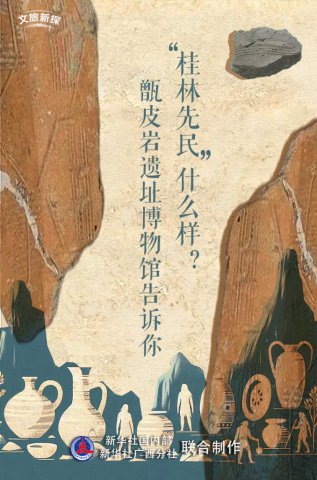 文旅新探
“桂林先民”什么样？
甑皮岩遗址博物馆告诉你
新华社国内部
新华社广西分社
联合制作